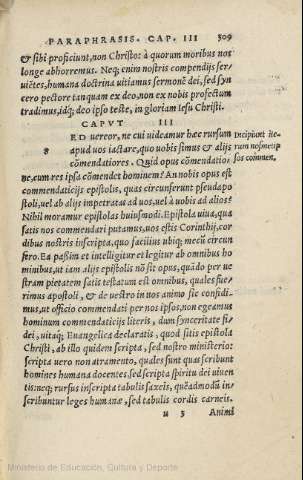 PARAPHRASIS. CAP. III 509
& sibi proficiunt, non Christo: à quorum moribus nos
longe abhorremus. Neq; enim nostris compendijs ser-
uiētes, humana doctrina uitiamus sermonē dei, sed syn
cero pectore tanquam ex deo, non ex nobis profectum
tradimus, idq; deo ipso teste, in gloriam Iesu Christi.
CAPVT III
ED uereor, ne cui uideamur hæc rursum
apud uos iactare, quo uobis simus & alijs
cōmendatiores. Quid opus cōmendatio
Incipiunt ite-
rum nosmetip
sos commen.
S
ne, cum res ipsa cōmendet hominem? An nobis opus est
commendaticijs epistolis, quas circunferunt pseudapo
stoli, uel ab alijs impetratas ad uos, uel à uobis ad alios?
Nihil moramur epistolas huiusmodi. Epistola uiua, qua
satis nos commendari putamus, uos estis Corinthij, cor
dibus nostris inscripta, quo facilius ubiq; mecū circun
fero. Ea paßim et intelligitur et legitur ab omnibus ho
minibus, ut iam alijs epistolis nō sit opus, quādo per ue
stram pietatem satis testatum est omnibus, quales fue-
rimus apostoli, & de uestro in uos animo sic confidi-
mus, ut officio commendati per nos ipsos, non egeamus
hominum commendaticijs literis, dum synceritate fi-
dei, uitaq; Euangelica declaratis, quod sitis epistola
Christi, ab illo quidem scripta, sed nostro ministerio:
scripta uero non atramento, quales sunt quas scribunt
homines humana docentes, sed scripta spiritu dei uiuen
tis: neq; rursus inscripta tabulis saxeis, quēadmodū in-
scribuntur leges humanæ, sed tabulis cordis carneis.
u 3 Animi
Ministerio de Educación, Cultura y Deporte